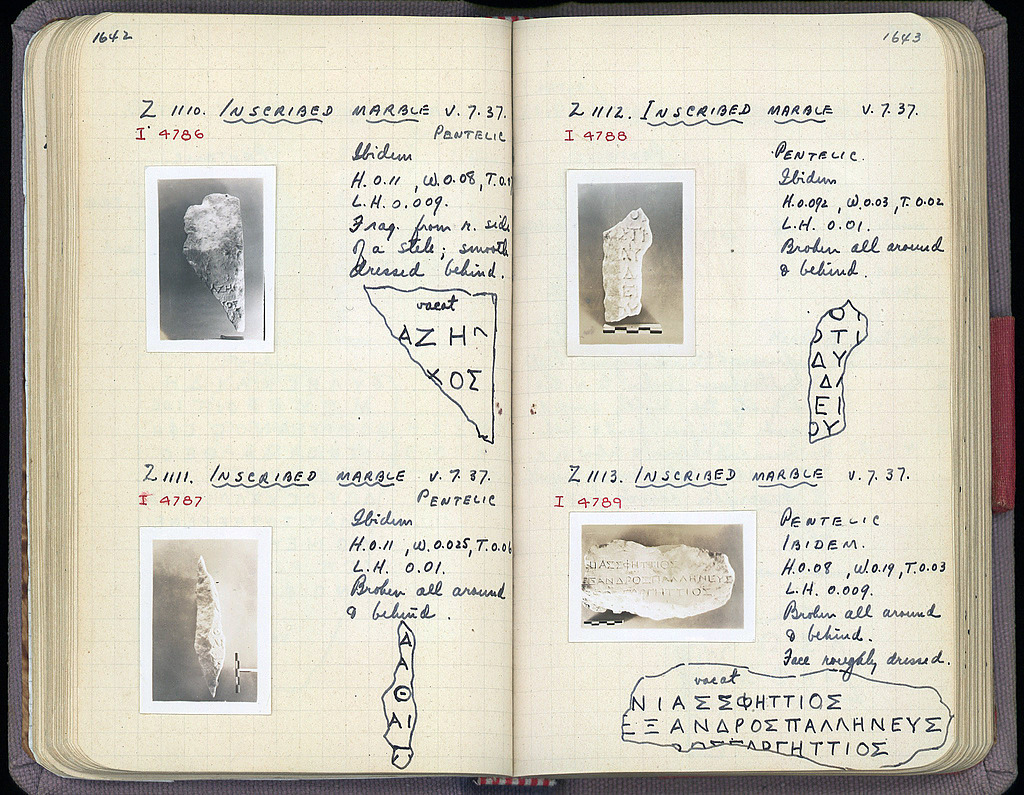 1642
Z 1110. INSCRIBED MARBLE V. 7. 37.
I 4786
PENTELIC
Ibidem
H. 0.11, W. 0.08, T. 0.1
L. H. 0.009.
Frag. from r. side
of a stele; smooth
dressed behind.
vacat
ΑΖΗ
ΧΟΣ
Z 1111. INSCRIBED MARBLE V. 7. 37.
I 4787
PENTELIC
Ibidem
H. 0.11, W. 0.025, T. 0.06
L. H. 0.01.
Broken all around
& behind.
Α
Α
Θ
ΑΙ
1643
Z 1112. INSCRIBED MARBLE V. 7. 37.
I 4788
PENTELIC.
Ibidem
H. 0.092, W. 0.03, T. 0.02
L. H. 0.01.
Broken all around
& behind.
ΟΙ
ΟΤΙ
ΔΥ
Δ
ΕΙ
ΟΥ
Z 1113. INSCRIBED MARBLE V. 7. 37.
I 4789
PENTELIC
IBIDEM.
H. 0.08, W. 0.19, T. 0.03
L. H. 0.009.
Broken all around
& behind.
Face roughly dressed.
vacat
ΝΙΑΣΣΦΗΤΤΙΟΣ
ΕΞΑΝΔΡΟΣΠΑΛΛΗΝΕΥΣ
ΑΡΓΗΤΤΙΟΣ